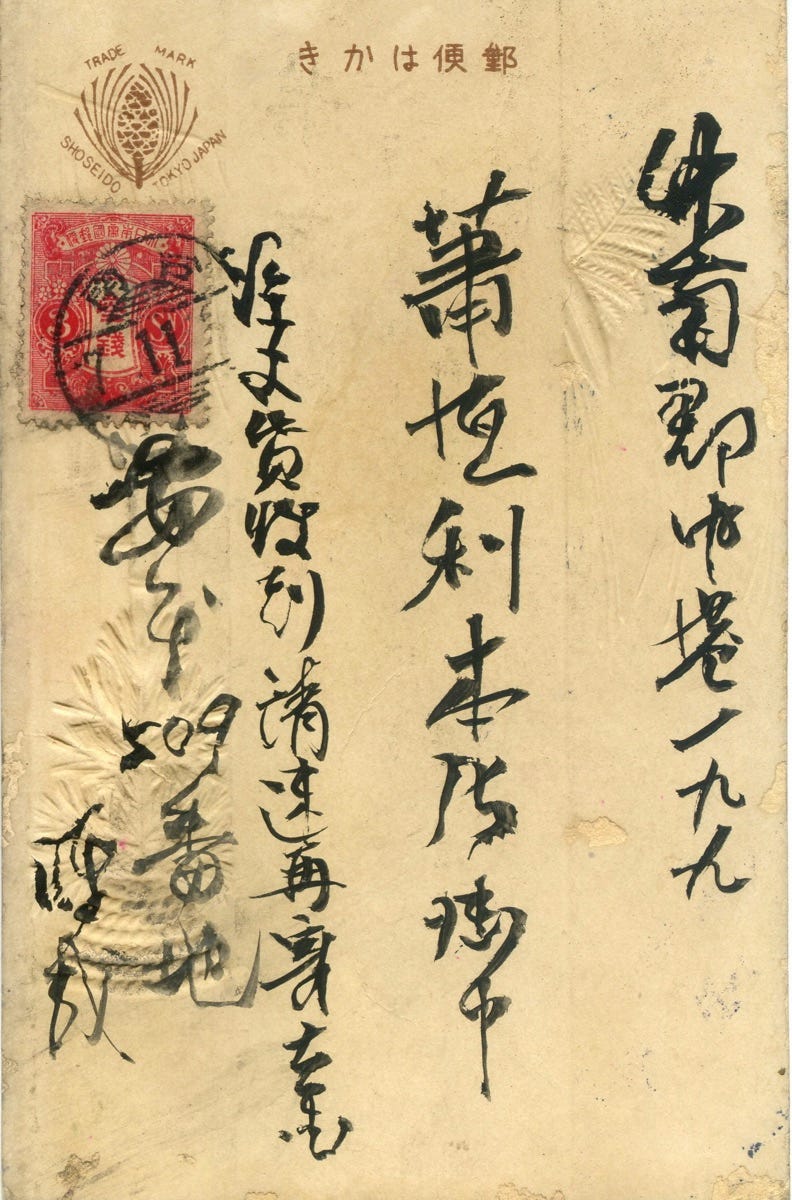 郵便はかき
TRADE MARK
SHOSEIDO TOKYO JAPAN
大日本帝國郵便
3 3
錢
7 11
郡中港一九九
蕭恆利本店御中
文貨收到請速再寄
安平509番地